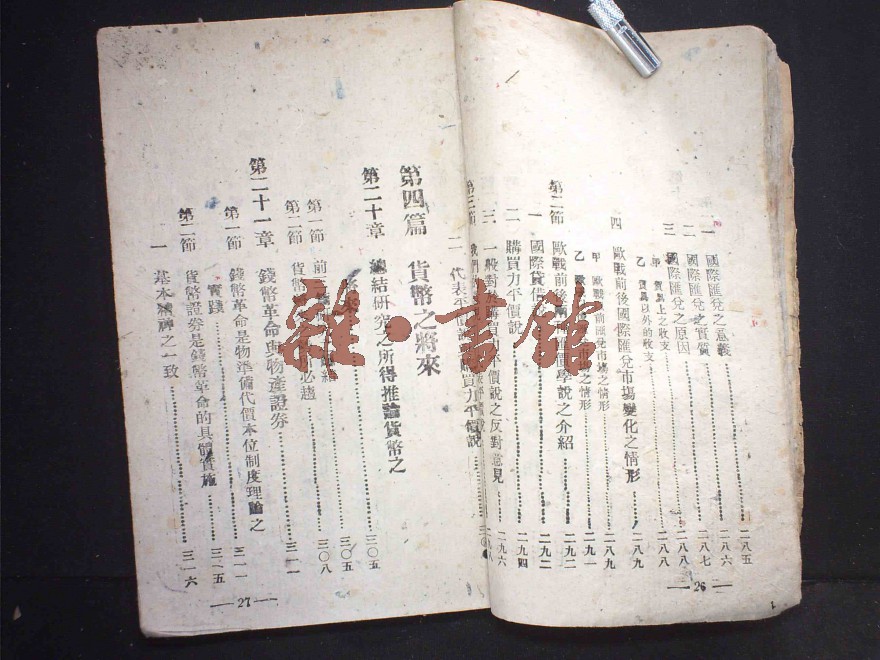 一 國際匯兌之意義 二八五
二 國際匯兌之實質 二八六
三 國際匯兌之原因 二八七
甲 貿易上之收支 二八八
乙 貿易以外的收支 二八八
四 歐戰前後國際匯兌市場變化之情形 二八九
甲 歐戰前匯兌市場之情形 二八九
乙 市場之情形 二九一
第二節 歐戰前後 價學說之介紹 二九二
一 國際貸借 二九二
二 購買力平價說 二九四
三 一般對於購買力平價說之反對意見 二九六
第三節 我們
二 代表平價 購買力平價說
第四篇 貨幣之將來
第二十章 總結研究之所得推論貨幣之
將來 三〇五
第一節 前 三〇五
第二節 貨幣 必趨 三〇八
第二十一章 錢幣革命與物產證券 三一一
第一節 錢幣革命是物準備代價本位制度理論之
實踐 三一一
第二節 貨幣證券是錢幣革命的具體實施 三一五
一 基本精神之一致 三一六
26
27
雜·書館